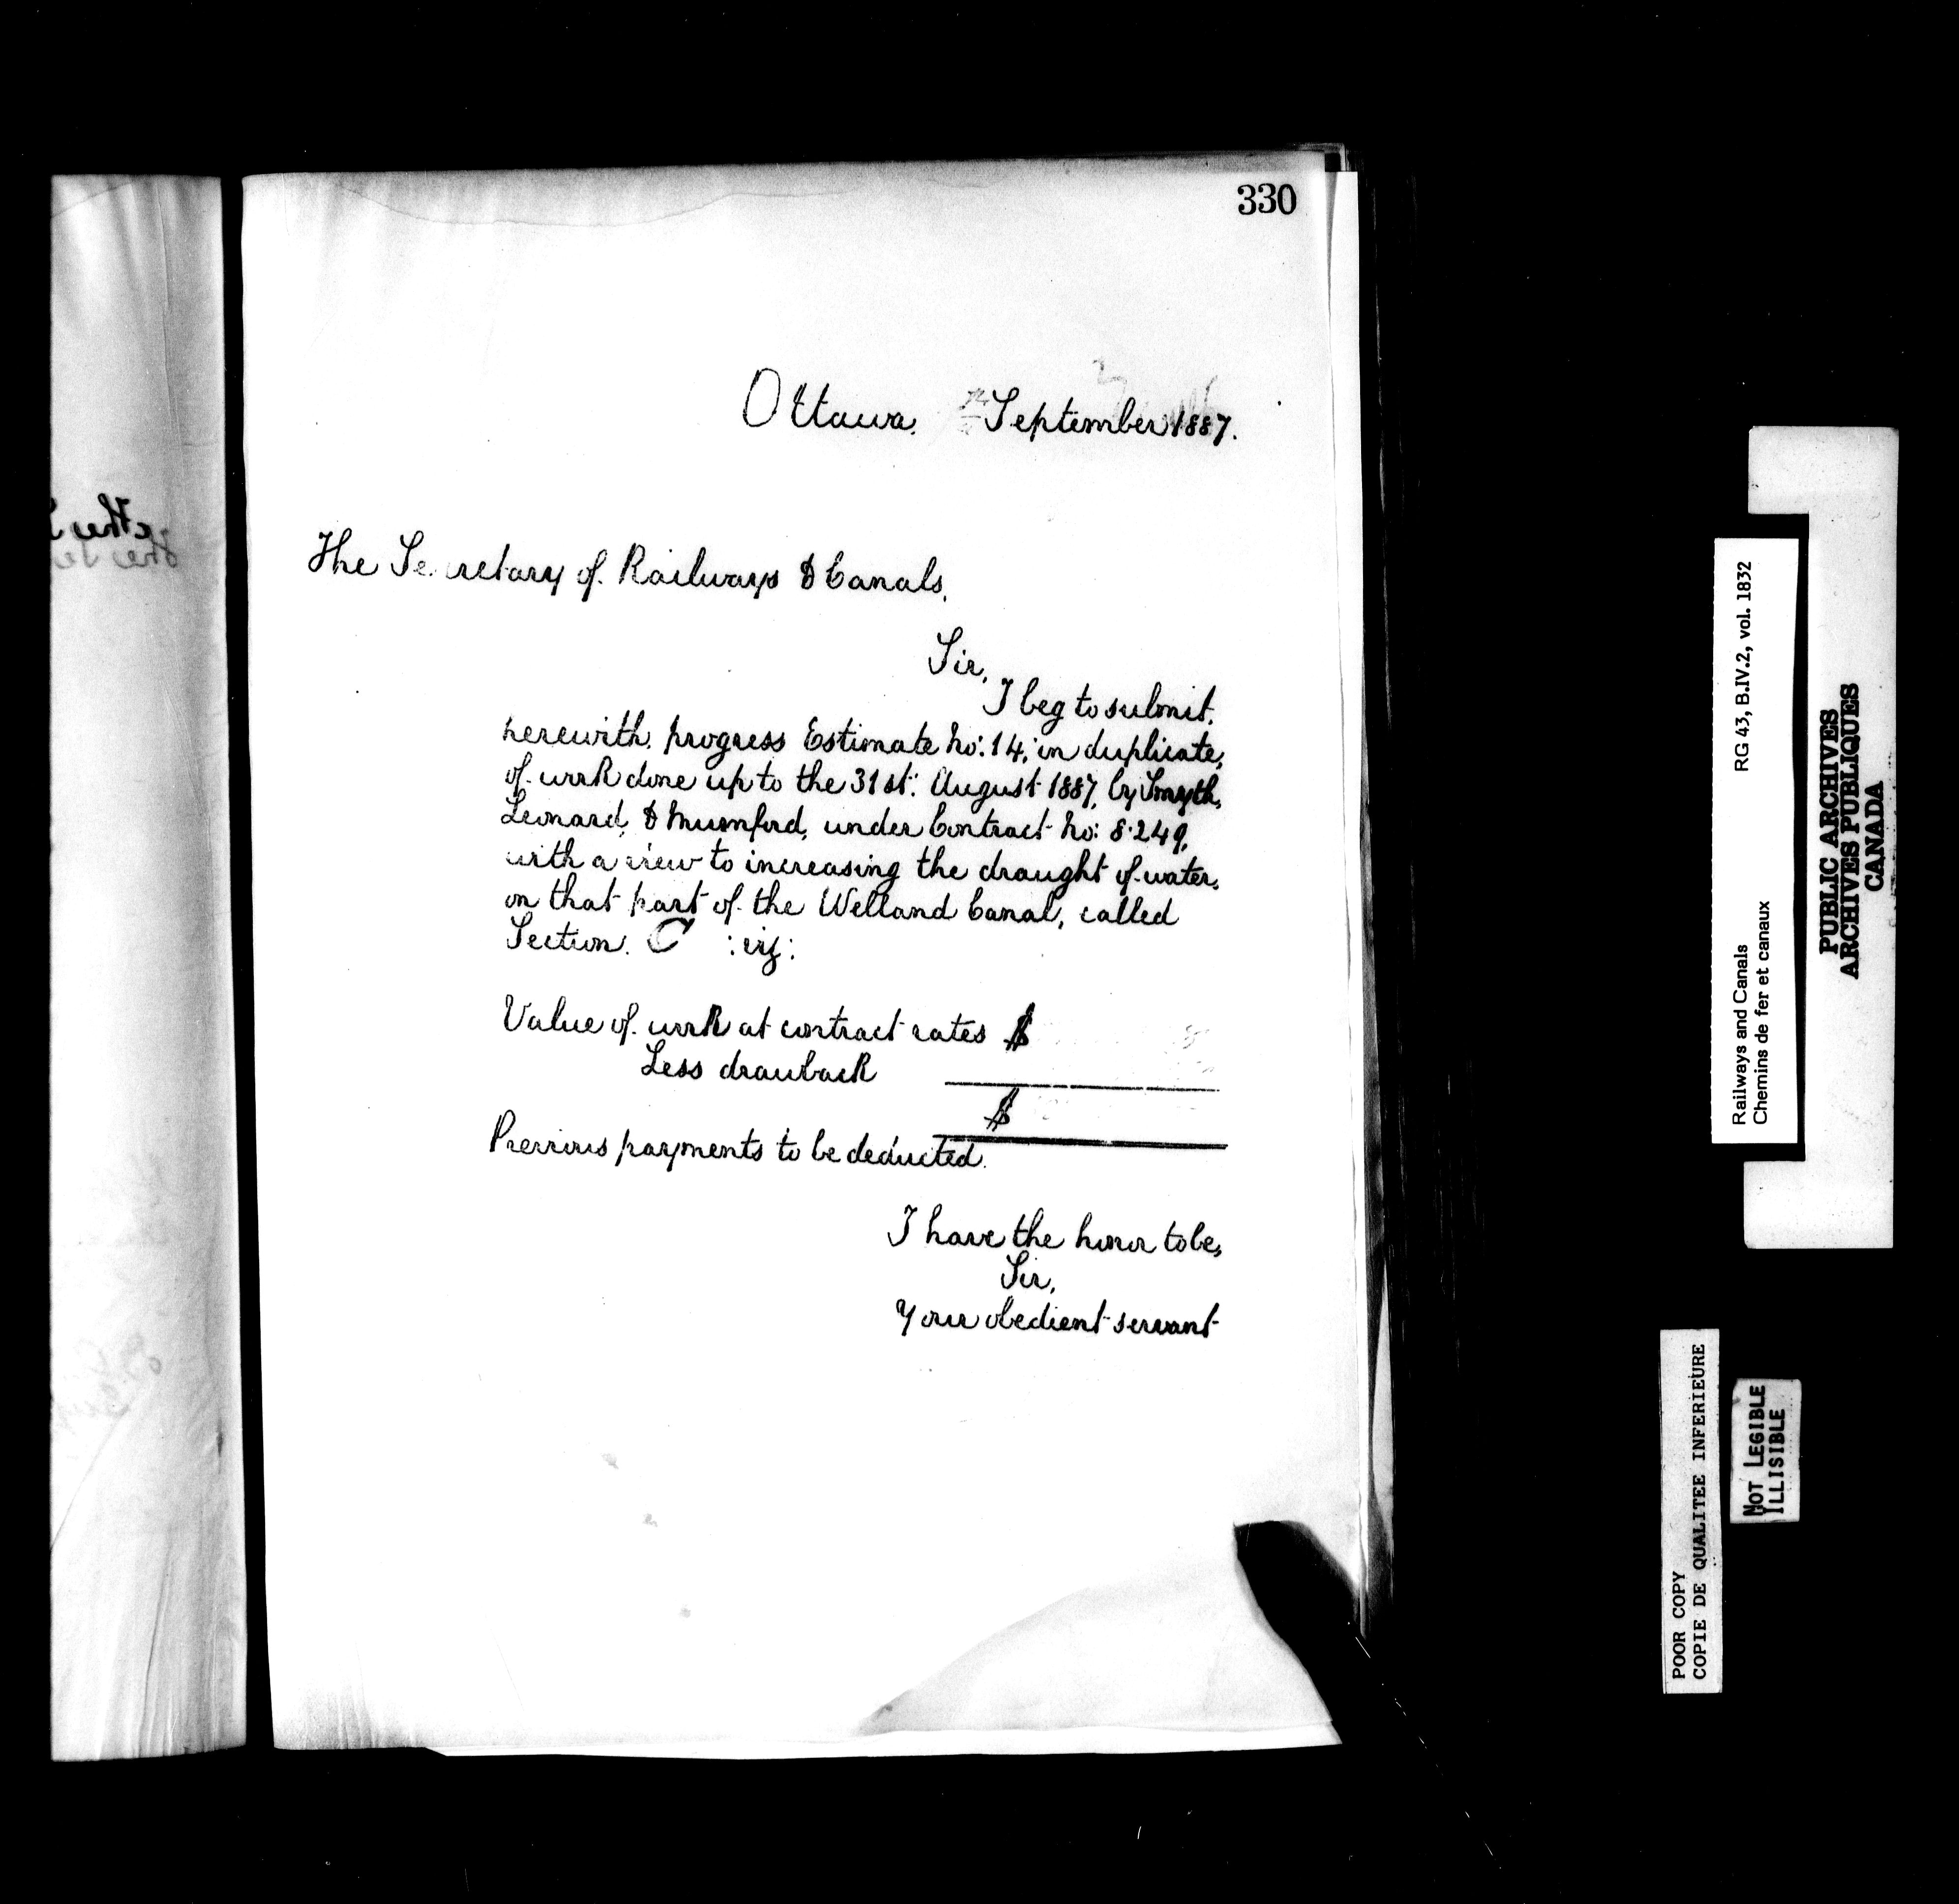 330
Ottawa. September 1887.
The Secretary of Railways & Canals.
Sir,
I beg to submit,
herewith, progress Estimate No: 14, in duplicate,
of work done up to the 31st: August 1887, by Smyth,
Leonard, & Mumford, under Contract No: 8.249,
with a view to increasing the draught of water,
on that part of the Welland Canal, called
Section. C :viz:
Value of work at contract rates $
Less drawback
$
Previous payments to be deducted.
I have the honor to be,
Sir,
Your obedient servant
Railways and Canals RG 43, B.IV.2, vol. 1832
Chemins de fer et canaux
PUBLIC ARCHIVES
ARCHIVES PUBLIQUES
CANADA
POOR COPY
COPIE DE QUALITEE INFERIEURE
NOT LEGIBLE
ILLISIBLE